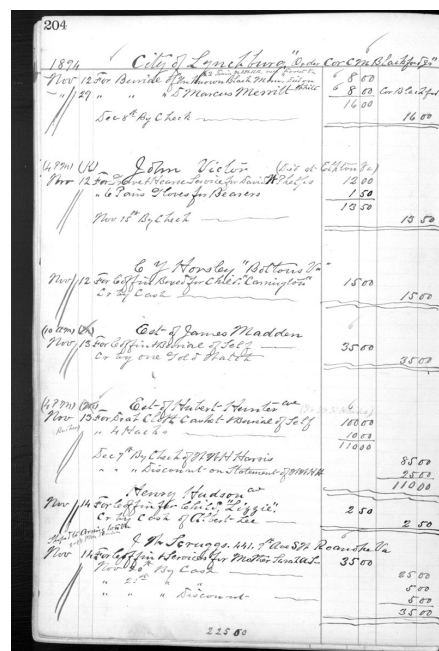 204
1894 City of Lynchburg "Order Cor C M Blackford Jr"
Nov 12 For Burial of Unknown Black Man 8 00
" 29 " " " Marcus Merritt 8 00 Cor Blackford
16 00
Dec 8th By Check 16 00
(4 PM) John Victor
Nov 12 For Gravet Hearse Service for David Phelps 12 00
" 6 Pairs Gloves for Bearers 1 50
13 50
Nov 15th By Check 13 50
C Y Horsley "Bottons Va"
Nov 12 For Coffin Boxed for Child "Carrington" 15 00
Cr By Cash 15 00
(10 AM) Est of James Madden
Nov 13 For Coffin & Burial of Self 35 00
Cr by one Gold Watch 35 00
(4 PM) Est of Hubert Hunter
Nov 13 For Cloth Casket & Burial of Self 100 00
" 4 Hacks 10 00
110 00
Dec 7th By Check of Harris 85 00
" " " Discount on Statement of 25 00
110 00
Henry Hudson
Nov 14 For Coffin for Child, "Lizzie". 2 50
Cr By Cash of Albert Lee 2 50
J W Scruggs. 441. 7th Ave SW Roanoke Va
Nov 14 For Coffin & Services for Mother 35 00
Nov 20th By Cash 25 00
" 21st " " 5 00
" " " Discount 5 00
35 00
225 50